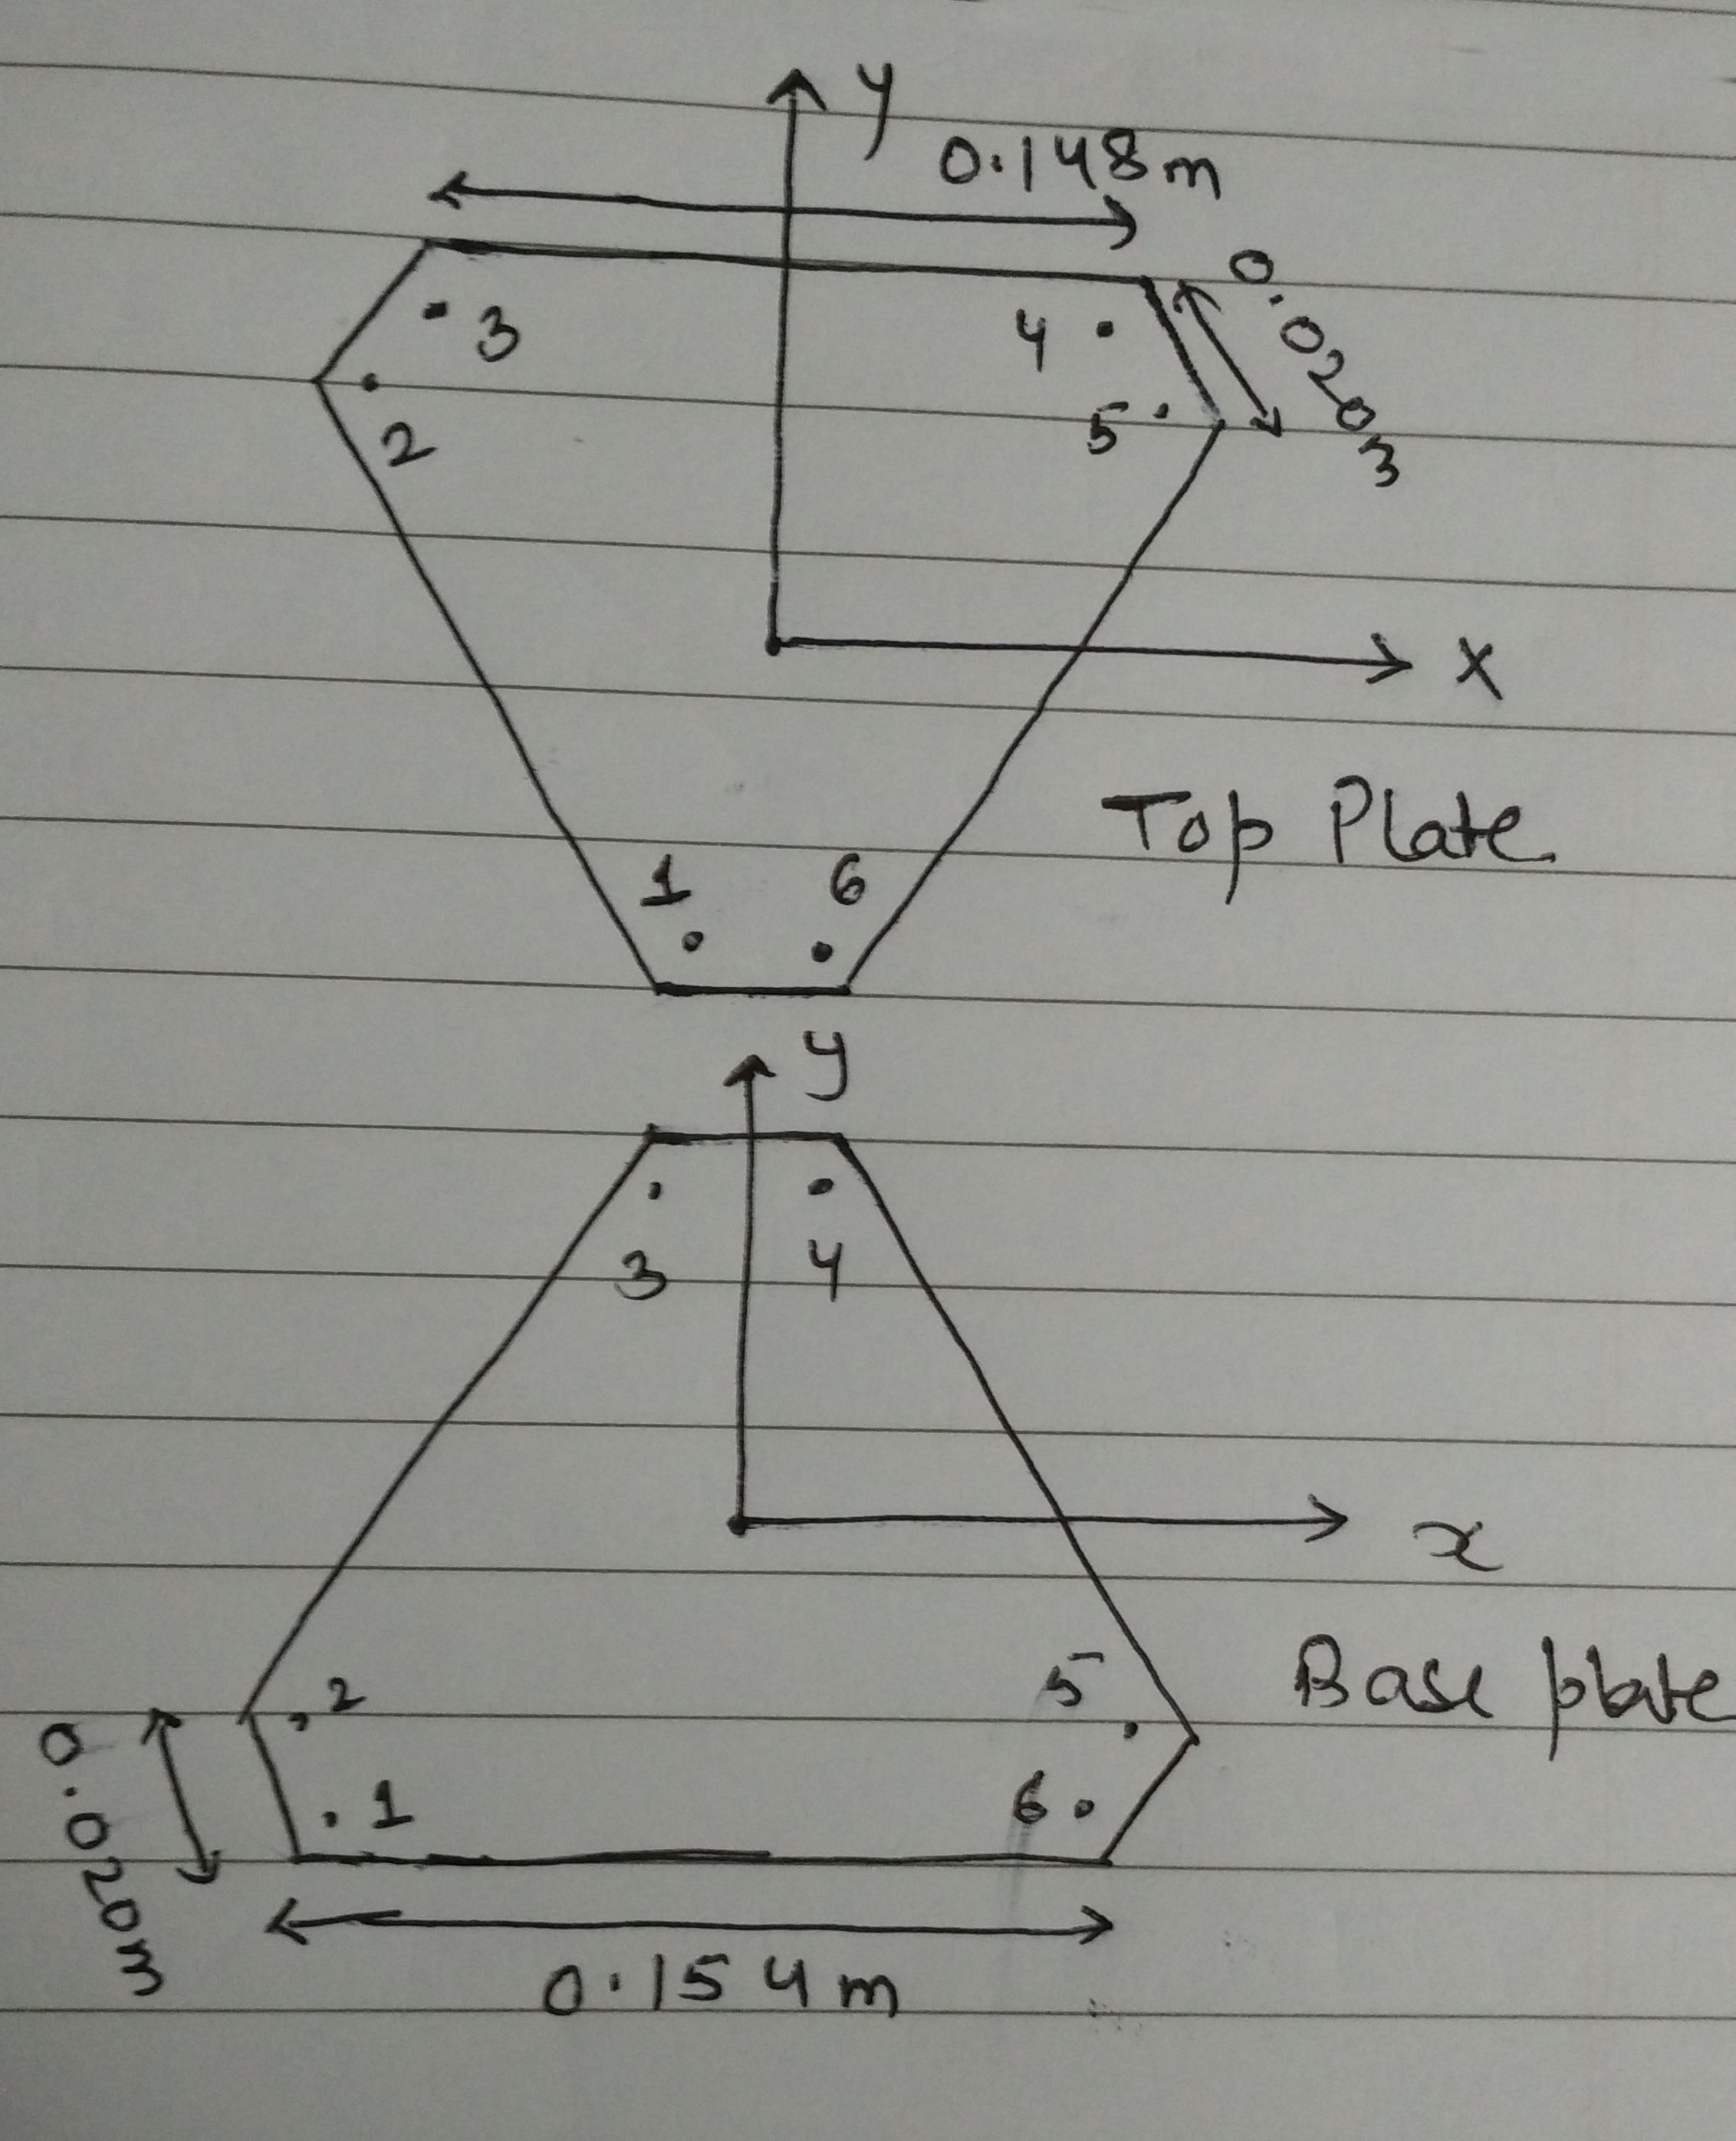 y
0.148m
0.020m
3
4
5
2
X
Top Plate
1
6
y
3
4
x
Base plate
2
5
1
6
0.020m
0.154m